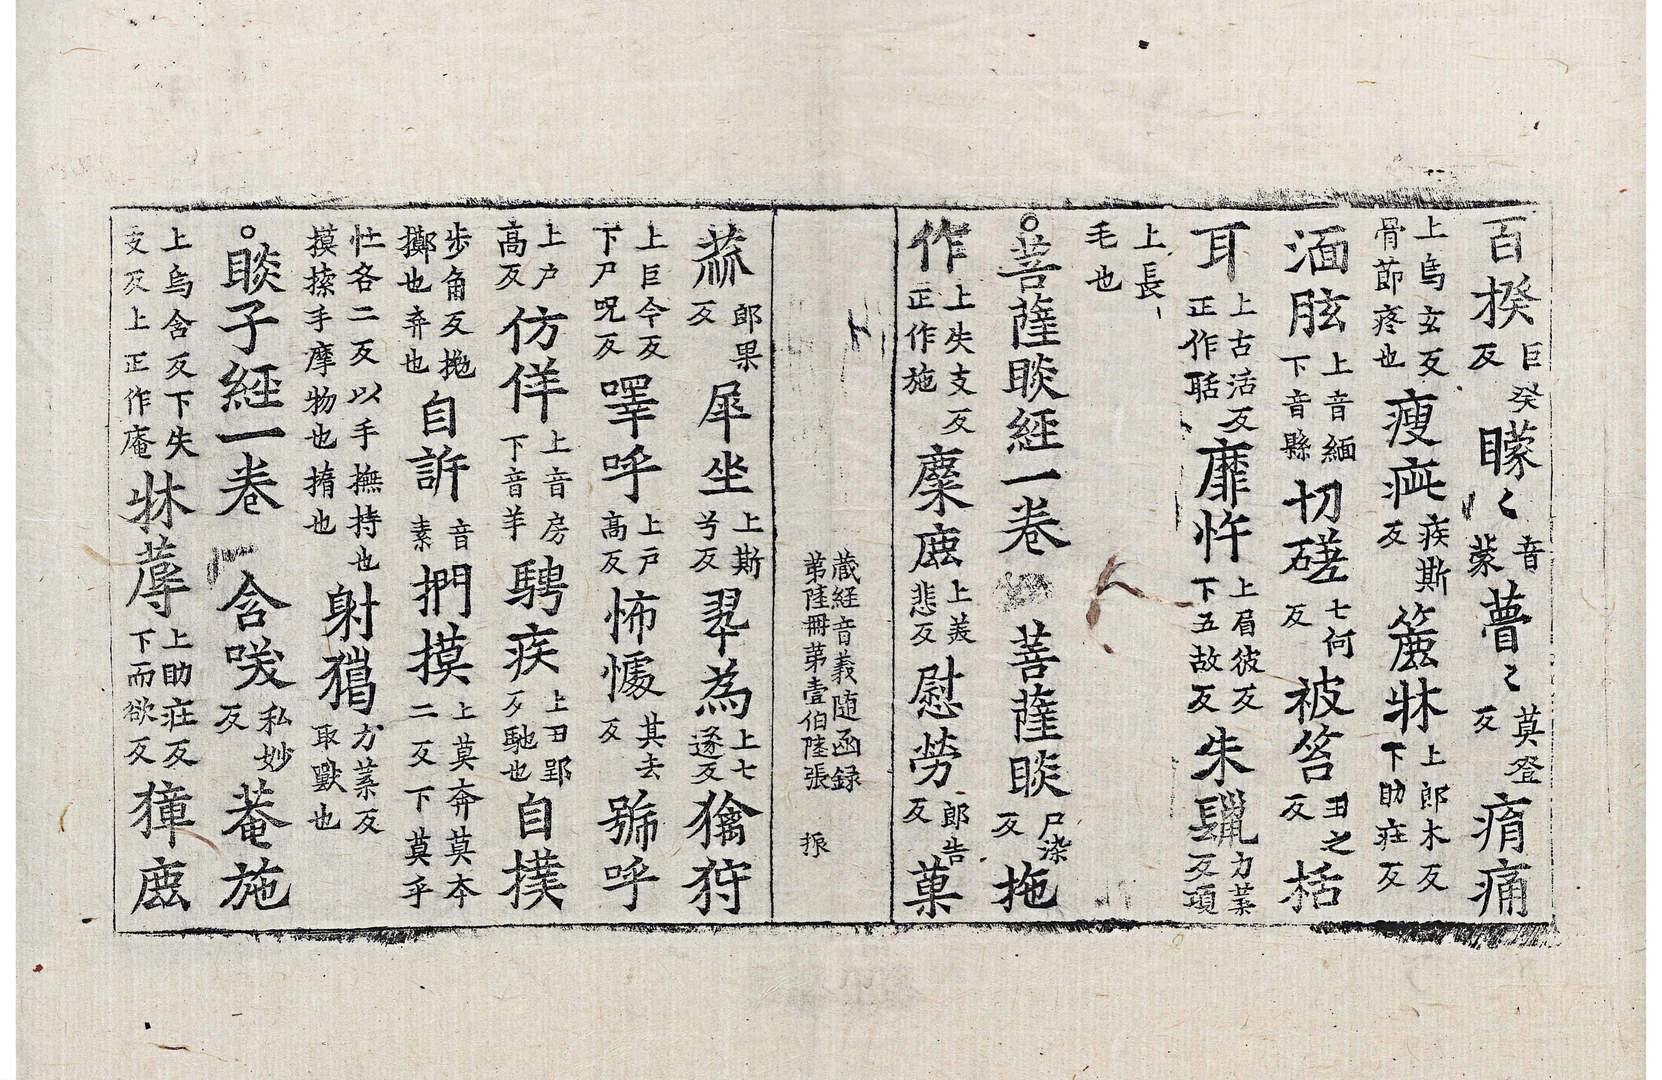 百揆巨癸反矇〻音蒙瞢〻莫登反痟痛
上烏玄反骨節疼也瘦疵疾斯反簏牀上郎木反下助庄反
湎眩上音緬下音縣切磋七何反被笞丑之反括
耳上古活反正作聒靡忤上眉彼反下五故反朱鬣力葉反項
上長毛也
○菩薩睒經一卷 菩薩睒尸染反拖
作上失支反正作施麋鹿上美悲反慰勞郎告反菓
藏經音義随函録
第陸冊第壹伯陸張 振
蓏郎果反犀坐上斯兮反翠為上七遂反㺉狩
上巨今反下尸呪反嘷呼上戸高反怖懅其去反號呼
上戸高反仿佯上音房下音羊騁疾上丑郢反馳也自撲
步角反抛擲也弃也自訴音素捫摸上莫奔莫本二反下莫乎
忙各二反以手撫持也摸㨞手摩物也揗也射獦力葉反取獸也
○睒子經一卷 含咲私妙反菴施
上烏含反下失支反上正作庵牀蓐上助庄反下而欲反獐鹿